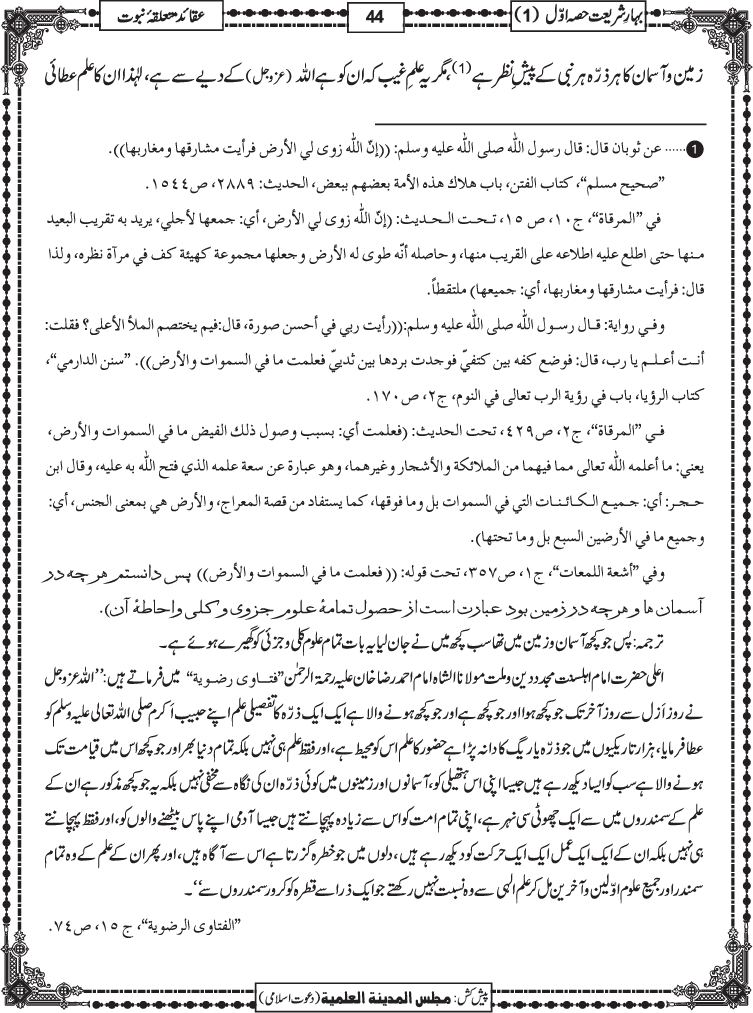 بہارِ شریعت حصہ اوّل (1)
44
عقائد متعلقۂ نبوت
زمین و آسمان کا ہر ذرّہ ہر نبی کے پیشِ نظر ہے (1)، مگر یہ علمِ غیب کہ ان کو ہے اللہ (عزوجل) کے دیے سے ہے، لہٰذا ان کا علم عطائی
1...... عن ثوبان قال: قال رسول الله صلى الله عليه وسلم: ((إنّ الله زوى لي الأرض فرأيت مشارقها ومغاربها)).
”صحيح مسلم“، كتاب الفتن، باب هلاك هذه الأمة بعضهم ببعض، الحديث: ٢٨٨٩، ص١٥٤٤.
في ”المرقاة“، ج١٠، ص ١٥، تـحـت الـحـديث: (إنّ الله زوى لي الأرض، أي: جمعها لأجلي، يريد به تقريب البعيد
مـنها حتى اطلع عليه اطلاعه على القريب منها، وحاصله أنّه طوى له الأرض وجعلها مجموعة كهيئة كف في مرآة نظره، ولذا
قال: فرأيت مشارقها ومغاربها، أي: جميعها) ملتقطاً.
وفـي رواية: قـال رسـول الله صلى الله عليه وسلم:((رأيت ربي في أحسن صورة، قال:فيم يختصم الملأ الأعلى؟ فقلت:
أنـت أعـلـم يا رب، قال: فوضع كفه بين كتفيّ فوجدت بردها بين ثدييّ فعلمت ما في السموات والأرض)). ”سنن الدارمي“،
كتاب الرؤيا، باب في رؤية الرب تعالى في النوم، ج٢، ص١٧٠.
فـي ”المرقاة“، ج٢، ص٤٢٩، تحت الحديث: (فعلمت أي: بسبب وصول ذلك الفيض ما في السموات والأرض،
يعني: ما أعلمه الله تعالى مما فيهما من الملائكة والأشجار وغيرهما، وهو عبارة عن سعة علمه الذي فتح الله به عليه، وقال ابن
حـجـر: أي: جـمـيع الـكـائـنـات التي في السموات بل وما فوقها، كما يستفاد من قصة المعراج، والأرض هي بمعنى الجنس، أي:
وجميع ما في الأرضين السبع بل وما تحتها).
وفي ”أشعة اللمعات“، ج١، ص٣٥٧، تحت قوله: (( فعلمت ما في السموات والأرض)) پس دانستم هر چه در
آسمان ها و هر چه در زمین بود عبارت است از حصول تمامۀ علوم جزوی و کلی و احاطۀ آن).
ترجمہ: پس جو کچھ آسمان و زمین میں تھا سب کچھ میں نے جان لیا یہ بات تمام علوم کلی و جزئی کو گھیرے ہوئے ہے۔
اعلیٰ حضرت امام اہلسنت مجدد دین و ملت مولانا الشاہ امام احمد رضا خان علیہ رحمۃ الرحمٰن ”فتاوی رضویة“ میں فرماتے ہیں: ’’اللہ عزوجل
نے روزِ اَزل سے روزِ آخر تک جو کچھ ہوا اور جو کچھ ہے اور جو کچھ ہونے والا ہے ایک ایک ذرّہ کا تفصیلی علم اپنے حبیب اکرم صلی اللہ تعالی علیہ وسلم کو
عطا فرمایا، ہزار تاریکیوں میں جو ذرّہ یا ریگ کا دانہ پڑا ہے حضور کا علم اس کو محیط ہے، اور فقط علم ہی نہیں بلکہ تمام دنیا بھر اور جو کچھ اس میں قیامت تک
ہونے والا ہے سب کو ایسا دیکھ رہے ہیں جیسا اپنی اس ہتھیلی کو، آسمانوں اور زمینوں میں کوئی ذرّہ ان کی نگاہ سے مخفی نہیں بلکہ یہ جو کچھ مذکور ہے ان کے
علم کے سمندروں میں سے ایک چھوٹی سی نہر ہے، اپنی تمام امت کو اس سے زیادہ پہچانتے ہیں جیسا آدمی اپنے پاس بیٹھنے والوں کو، اور فقط پہچانتے
ہی نہیں بلکہ ان کے ایک ایک عمل ایک ایک حرکت کو دیکھ رہے ہیں، دلوں میں جو خطرہ گزرتا ہے اس سے آگاہ ہیں، اور پھر ان کے علم کے وہ تمام
سمندر اور جمیع علوم اوّلین و آخرین مل کر علم الٰہی سے وہ نسبت نہیں رکھتے جو ایک ذرا سے قطرہ کو کرور سمندروں سے‘‘۔
”الفتاوى الرضوية“، ج ١٥، ص٧٤.
پیش کش: مجلس المدينة العلمية (دعوت اسلامی)